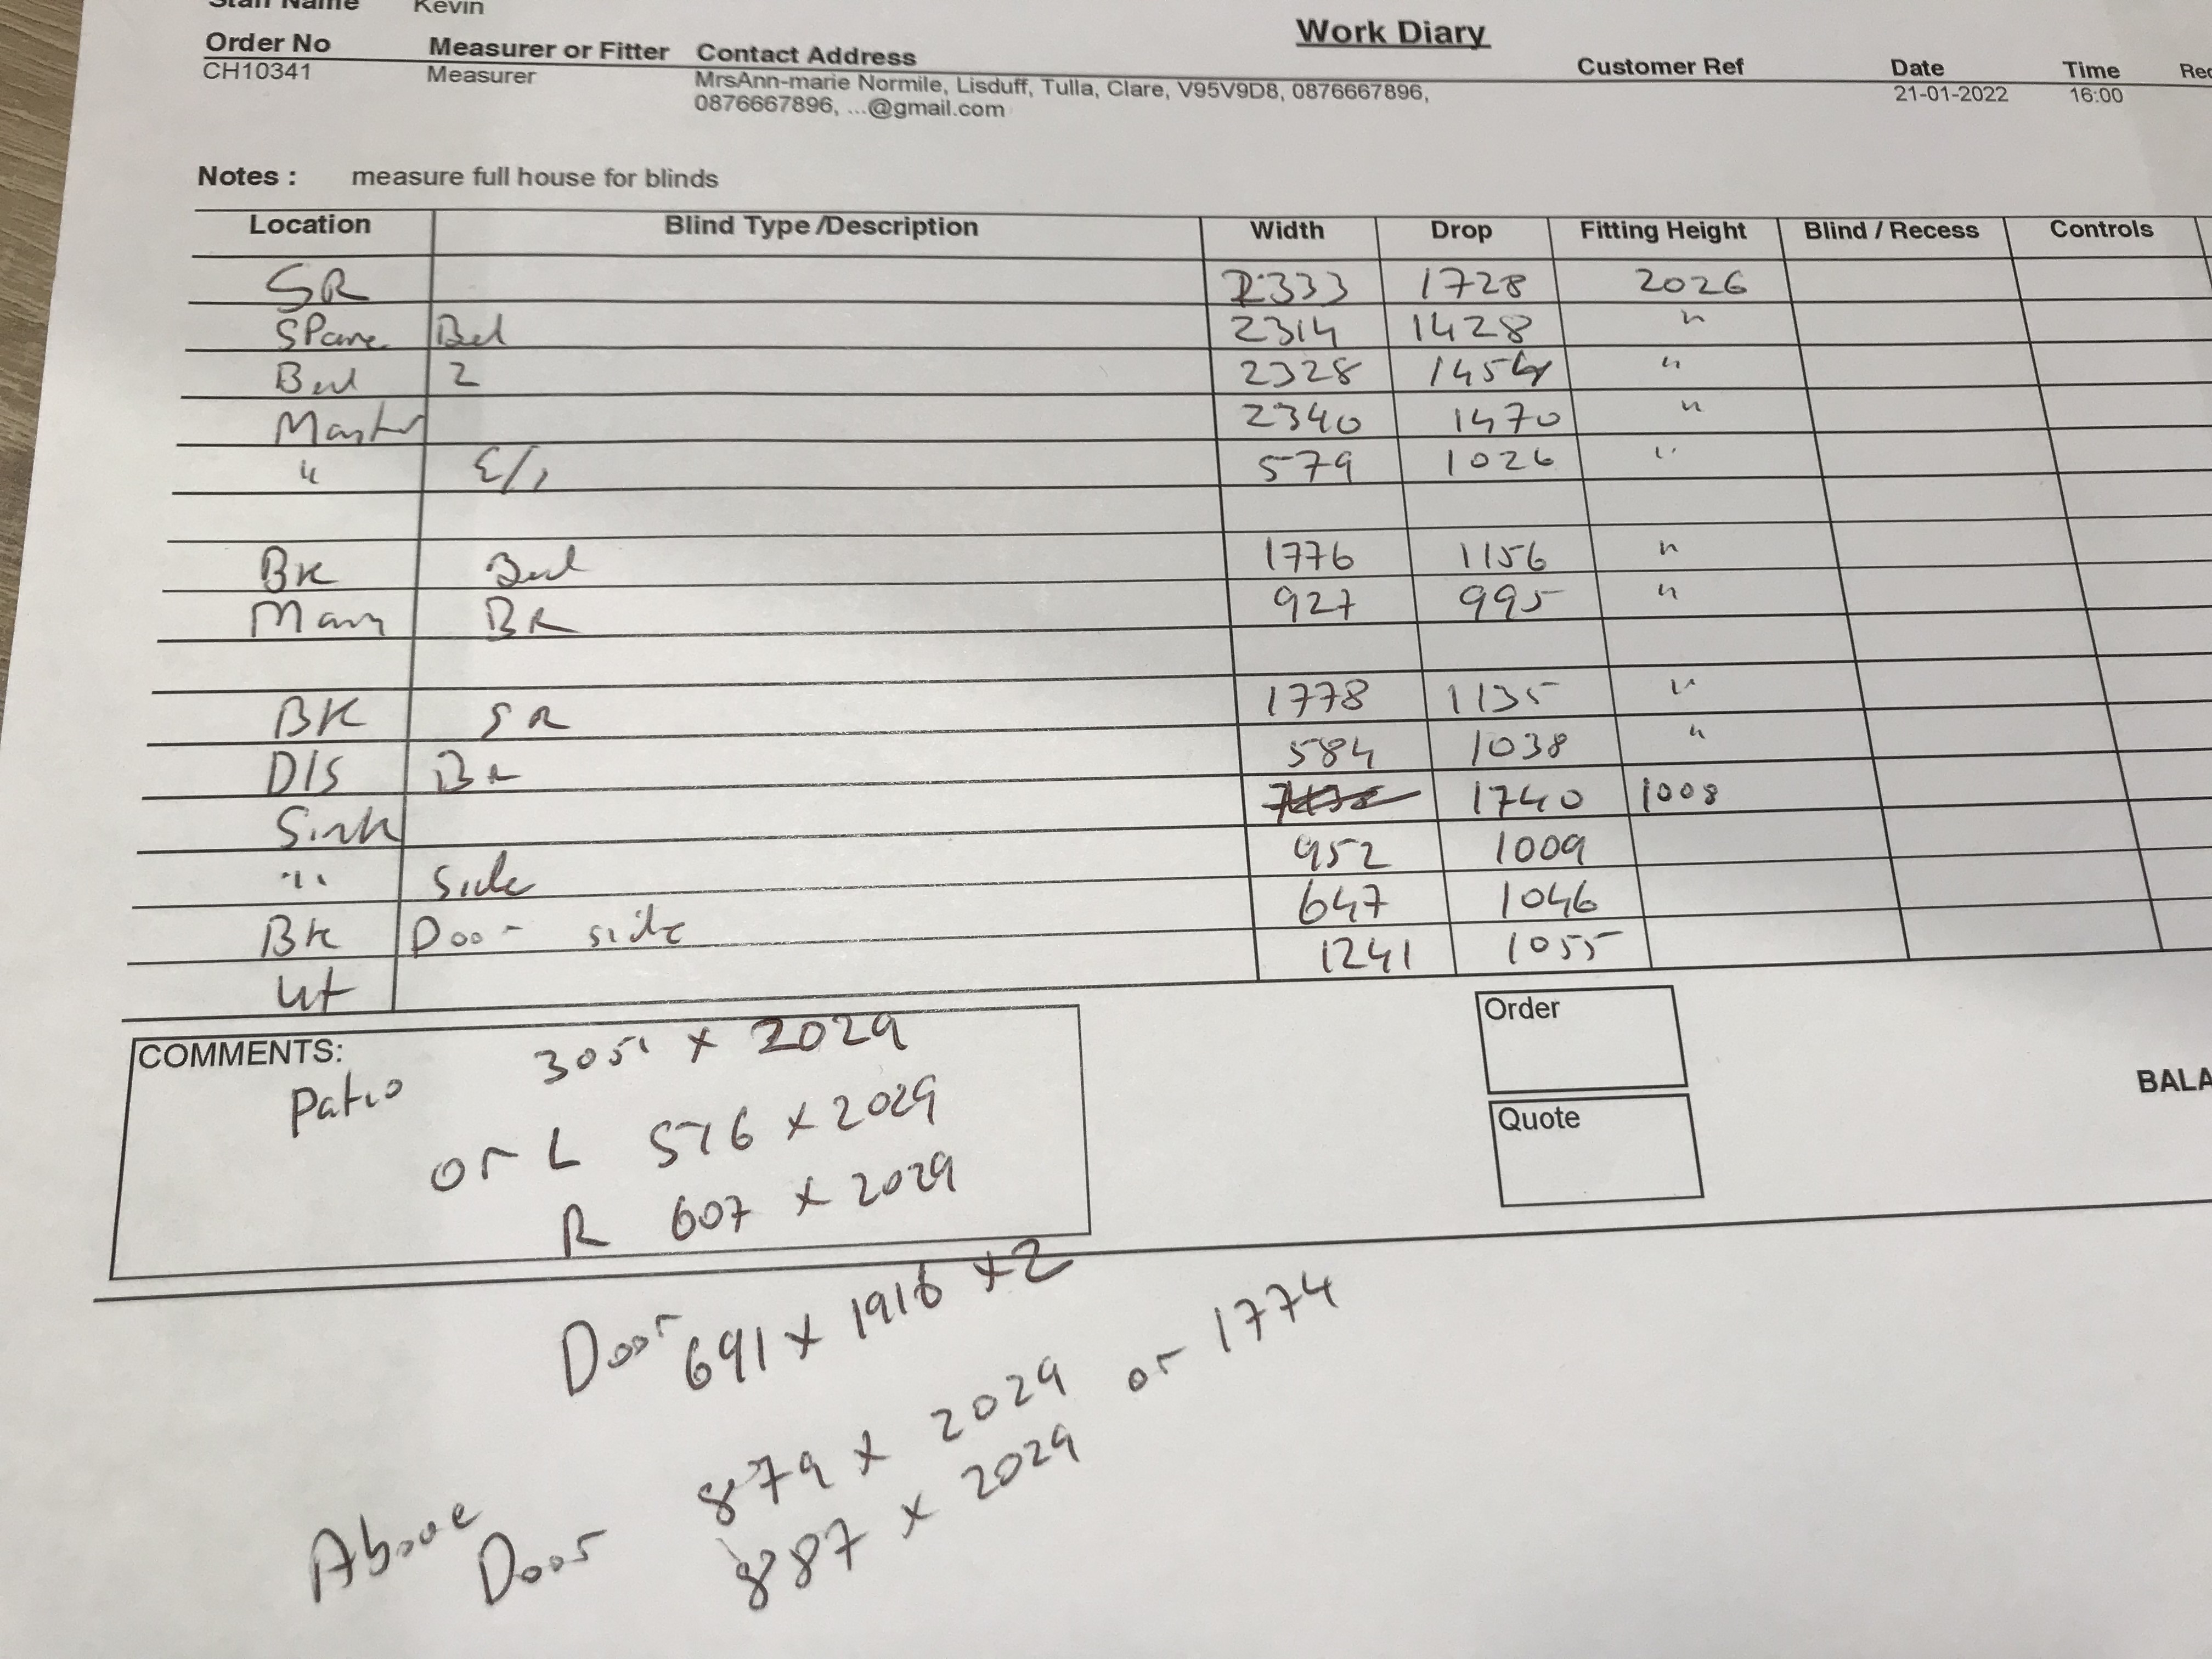 Staff Name Kevin
Work Diary
Order No Measurer or Fitter Contact Address Customer Ref Date Time
CH10341 Measurer MrsAnn-marie Normile, Lisduff, Tulla, Clare, V95V9D8, 0876667896, 21-01-2022 16:00
0876667896, ...@gmail.com
Notes : measure full house for blinds
Location Blind Type /Description Width Drop Fitting Height Blind / Recess Controls
SR 2333 1728 2026
Spare Bed 2314 1428 "
Bed 2 2328 1454 "
Master 2340 1470 "
" E/S 579 1026 "
BK Bed 1776 1156 "
Main BR 927 995 "
BK SR 1778 1135 "
D/S BR 584 1038 "
Sink 1740 1008
" Side 952 1009
BK Door side 647 1046
Ut 1241 1055
COMMENTS:
Patio 3051 x 2029
or L 576 x 2029
R 607 x 2029
Order
Quote
BALA
Door 691 x 1916 x 2
Above Door 879 x 2029 or 1774
887 x 2029